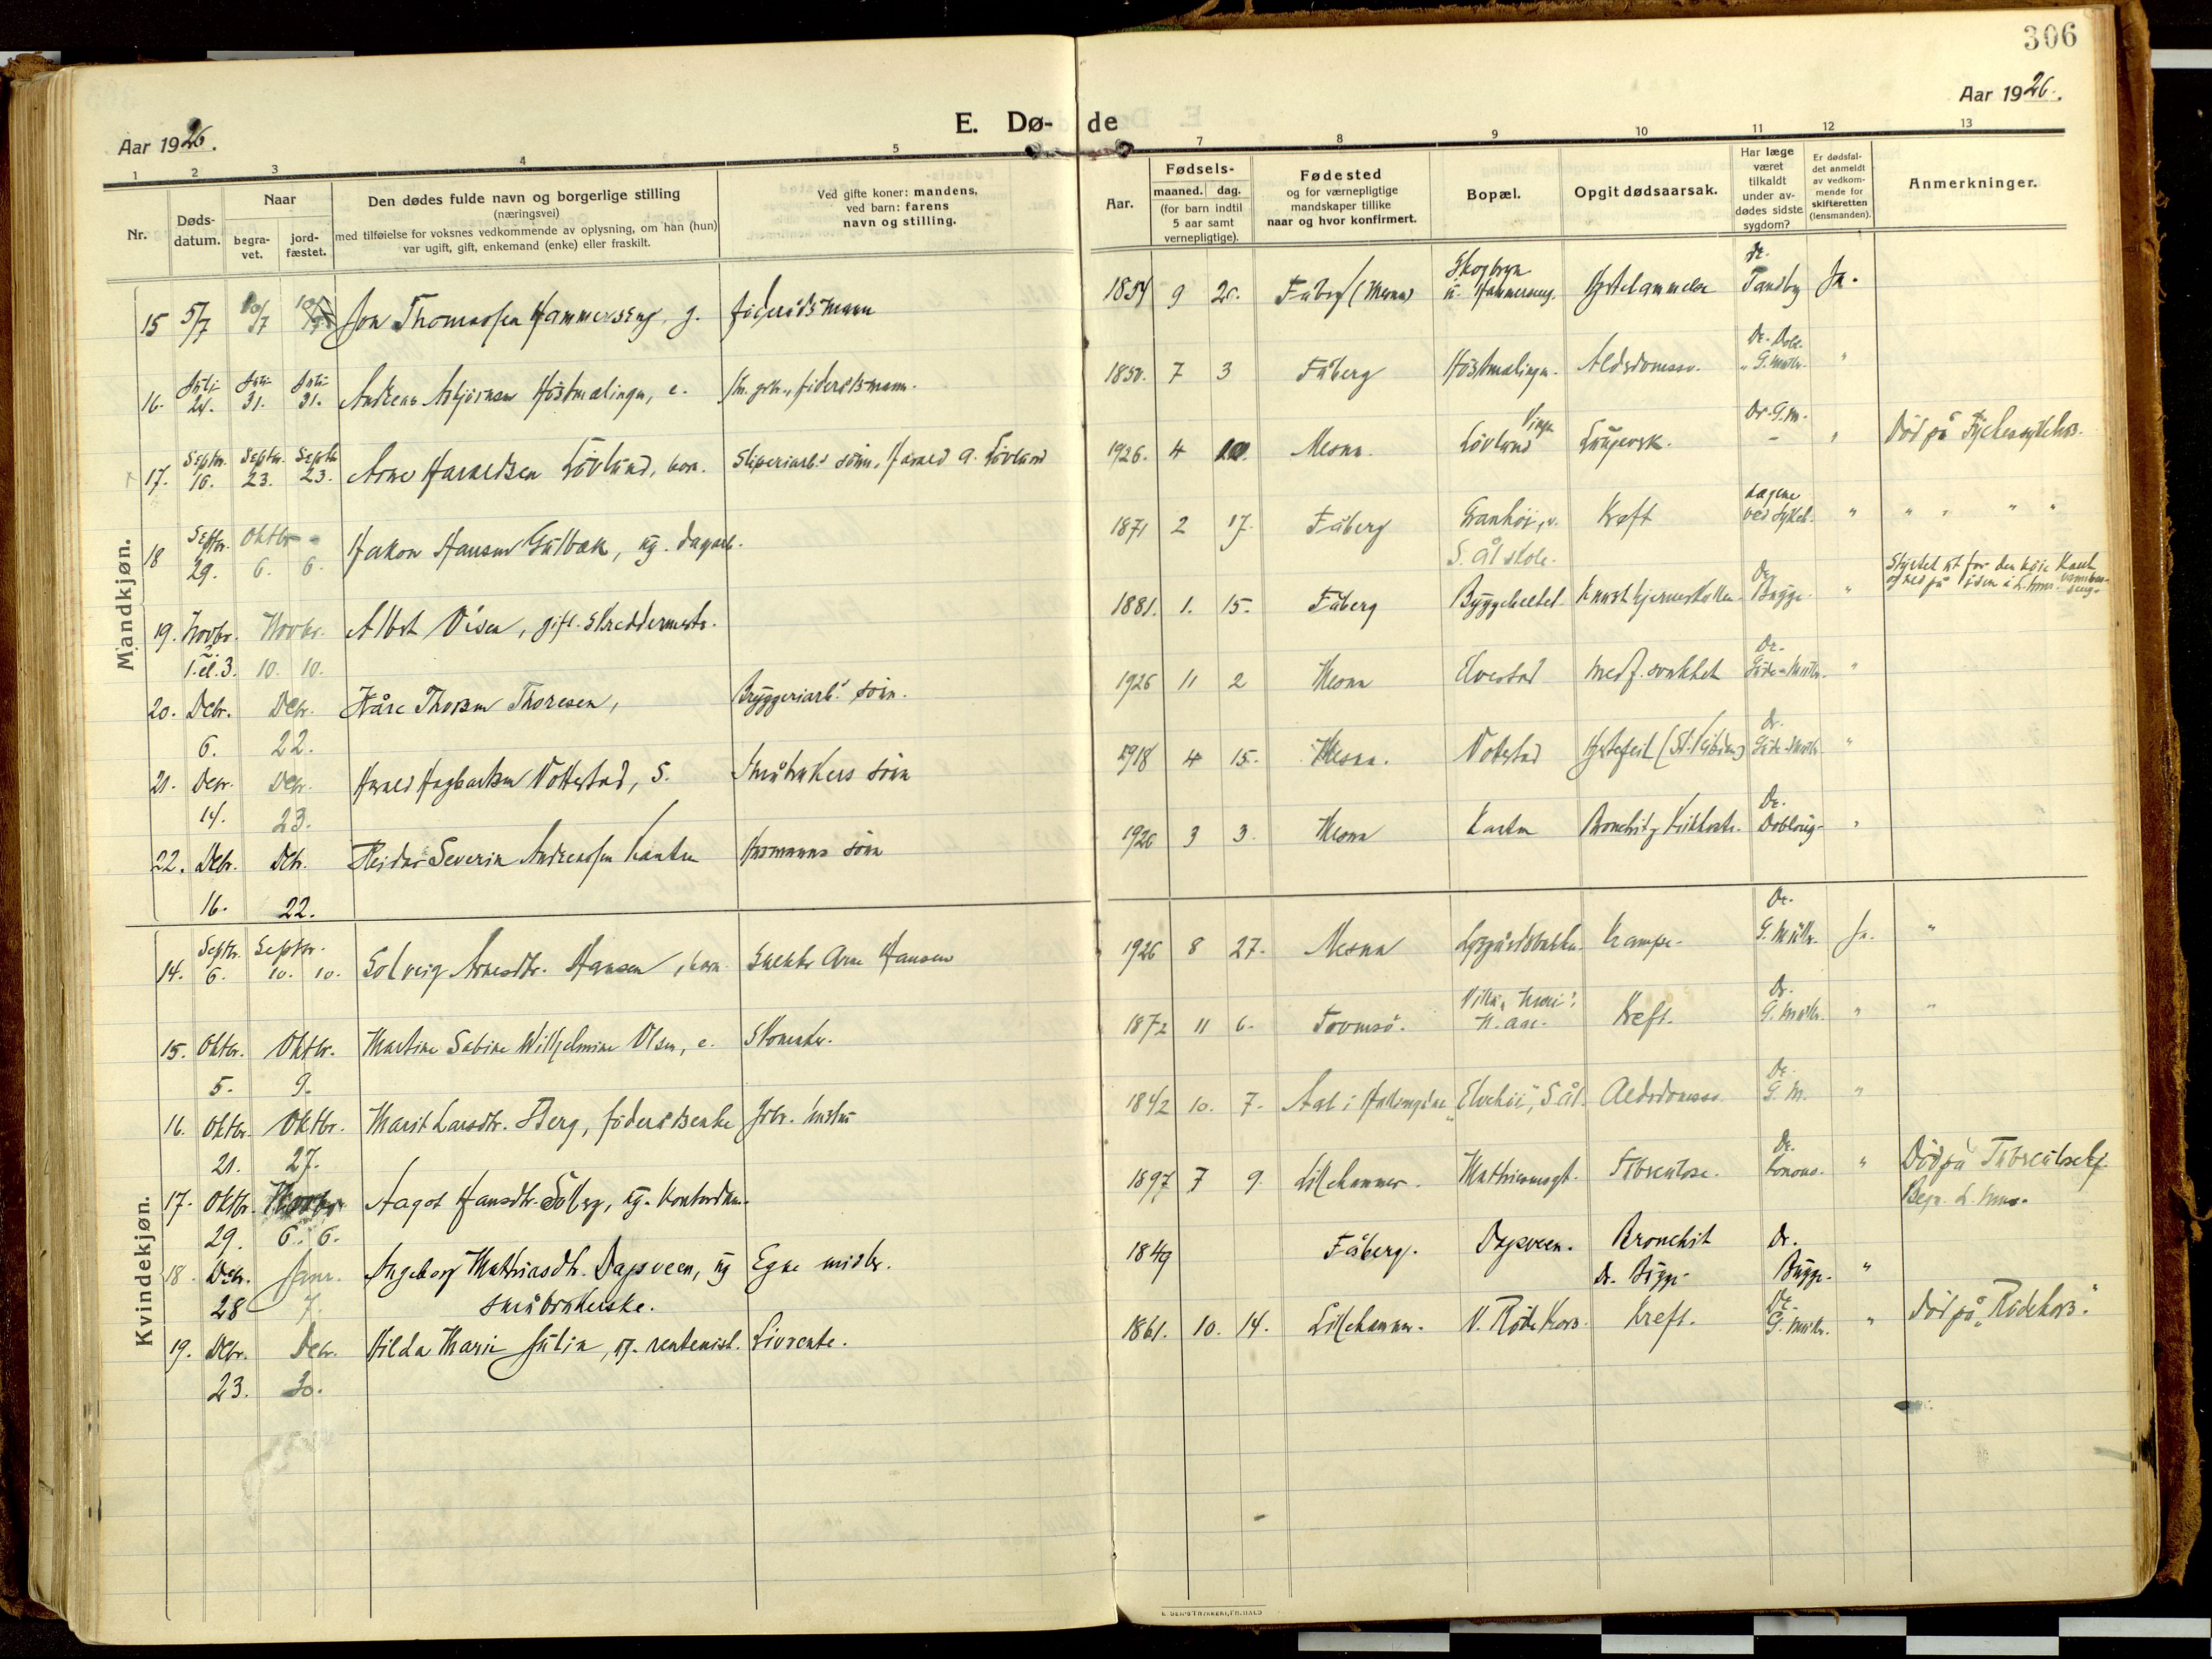 306
Aar 1926.
E. Dø-
de
Aar 1926.
1 2 3 4 5 7 8 9 10 11 12 13
Nr.
Døds-
datum.
Naar
begra-
vet.
jord-
fæstet.
Den dødes fulde navn og borgerlige stilling
(næringsvei)
med tilføielse for voksnes vedkommende av oplysning, om han (hun)
var ugift, gift, enkemand (enke) eller fraskilt.
Ved gifte koner: mandens,
ved barn: farens
navn og stilling.
Aar.
Fødsels-
maaned. dag.
(for barn indtil
5 aar samt
vernepligtige).
Fødested
og for værnepligtige
mandskaper tillike
naar og hvor konfirmert.
Bopæl.
Opgit dødsaarsak.
Har læge
været
tilkaldt
under av-
dødes sidste
sygdom?
Er dødsfal-
det anmeldt
av vedkom-
mende for
skifteretten
(lensmanden).
Anmerkninger.
Mandkjøn.
15 5/7 10/7 Jon Thomassen Hammerseng, g. føderådsmann 1854 9 20. Fåberg (Mesna) Hjertelammelse Dr. Sandby Ja.
16. Juli 24. Juli 31. Juli 31. Andreas Asbjørnsen Høstmælingen, e. føderådsmann. 1850. 7 3 Fåberg Høstmælingen. Alderdomssv. "
17. Septbr. 16. Septbr. 23. Septbr. 23. Arne Haraldsen Løvlund, barn. Sliperiarb.s sønn, Harald A. Løvlund 1926. 4 Mesna. Løvlund Dr. G.M. " Død på Fylkessykehus.
18 Septbr. 29. Oktbr 6. 6. Hakon Hansen Gulbæk, ug. dagarb. 1871 2 17. Fåberg Granhøi, v. S. Ål skole. Kreft Lægene ved sykeh. " " " " "
19. Novbr. 1. el. 3. Novbr. 10. 10. Albert Olsen, gift. skreddermestr. 1881. 1. 15. Fåberg Knust hjerneskallen Dr. Bugge "
20. Debr. 6. Debr. 22. Kåre Thorsen Thoresen, Bryggeriarb.s sønn. 1926 11 2 Mesna Elvestad Medf. svakhet "
21. Debr. 14. Debr. 23. Harald Hagbartsen Nottestad, S. Småbrukers sønn 1918 4 15. Mesna. Nottestad Hjertefeil "
22. Debr. 16. Debr. 22. Reidar Severin Andreassen Kanten Husmanns sønn 1926 3 3. Mesna Kanten Bronchit, Kikhoste. Dr. Dobloug "
Kvindekjøn.
14. Septbr. 6. Septbr. 10. 10. Solveig Arnesdtr. Hansen, barn. Snekker Arne Hansen 1926 8 27. Mesna Lysgårdsbakken Krampe. Dr. G. Müller. Ja. "
15. Oktbr. 5. Oktbr. 9. Martine Sabine Wilhelmine Olsen, e. Skomaker. 1872 11 6. Tromsø. Kreft. Dr. G. Müller. " "
16. Oktbr. 21. Oktbr. 27. Marit Larsdtr. Berg, føderådsenke 1842 10. 7. Aal i Hallingdal "Elvehøi", S. Ål. Alderdomssv. Dr. G. M. "
17. Oktbr. 29. 6. 6. Aagot Hansdtr. Solberg, ug. kontordame. 1897 7 9. Lillehammer. Tuberkulose. Dr. " Død på Tuberkulosehj.
18. Debr. 28 Janr. 7. Ingeborg Mathiasdtr. Dapsveen, ug småbrukerske. Egne midler. 1849 Fåberg. Dapsveen. Bronchit Dr. Bugge. Dr. Bugge. "
19. Debr. 23. Debr. 30. Hilda Marie Julin, ug. rentenist. Livrente. 1861. 10. 14. Lillehammer. V. Røde Kors. Kreft. Dr. G. Müller. " Død på "Rødekors".